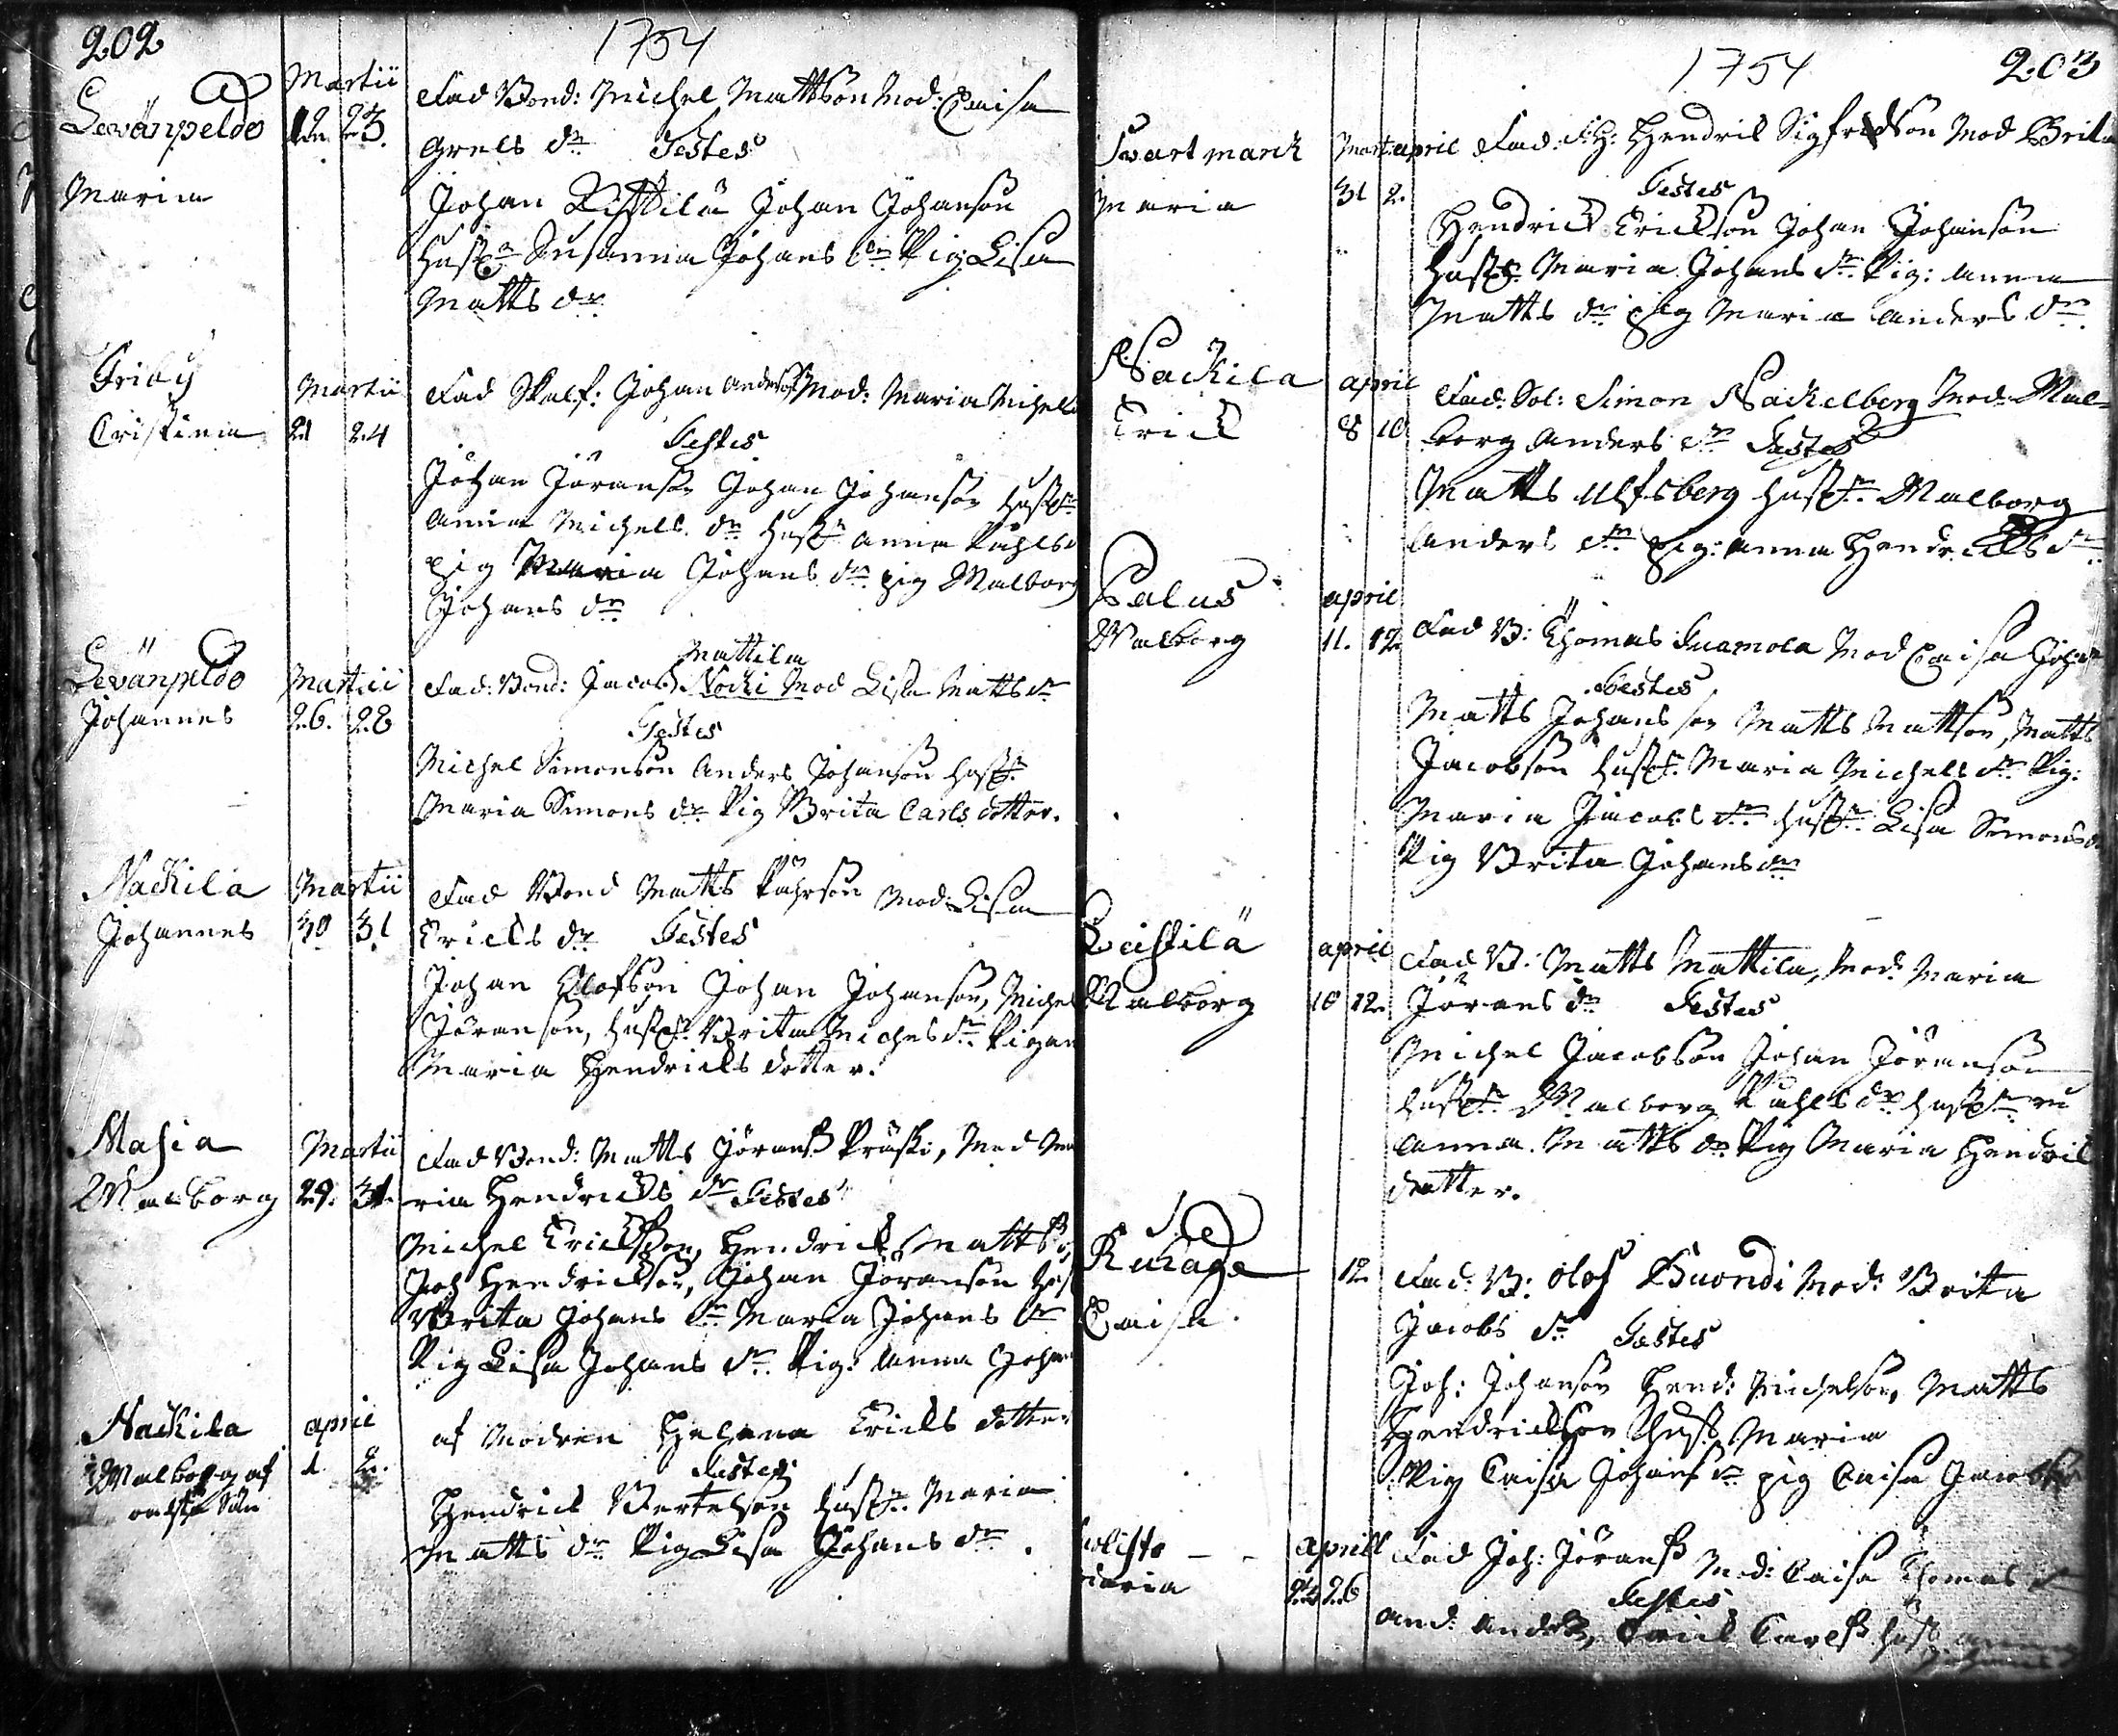 202
1754
Levänpeldo
Martii
12. 23.
Maria
Fad Bond: Michel Mattson Mod: Caisa
Grels dr Testes
Johan Johan Johanson
hust Susanna Johans dr Pig Lisa
Matts dr
Friby
Martii
Cristina
21 24
Fad Skalf: Johan Anderss Mod: Maria Michels
Testes
Johan Jöranson Johan Johanson hust
Anna Michels dr hust Anna Påhls
pig Maria Johans dr pig Walborg
Johans dr
Levänpeldo
Martii
Johannes
26. 28
Mattila
Fad: Bond: Jacob Nocki Mod Lisa Matts dr
Testes
Michel Simonson Anders Johanson hust
Maria Simons dr Pig Brita Carls dotter.
Nackila
Martii
Johannes
30 31
Fad Bond Matts Påhrson Mod: Lisa
Ericks dr Testes
Johan Olofson Johan Johanson, Michel
Jöranson, hust Brita Michels dr Pigan
Maria Hendricks dotter.
Masia
Martii
Walborg
29. 31.
Fad Bond: Matts Jöranss Präski, Mod Ma
ria Hendricks dr Testes
Michel Erickson, Hendrick Mattss,
Joh Hendrickson, Johan Jöranson hust
Brita Johans dr Maria Johans dr
Pig Lisa Johans dr Pig: Anna Johan
Nackila
april
Walborg af
oächta Säng
1. 2.
af Modren Helena Ericks dotter
Testes
Hendrick Bertelson hust Maria
Matts dr Pig Lisa Johans dr.
1754
203
Svartmarck
Mart: april
Maria
31 2.
Fad: Hendric Sigfredson Mod Brita
Testes
Hendrick Erickson Johan Johanson
hust Maria Johans dr Pig: Anna
Matts dr pig Maria Anders dr
Nackila
april
Erick
8 10
Fad: Sol: Simon Nackelberg Mod: Wal-
borg Anders dr Testes
Matts Ulfsberg hust Walborg
Anders dr pig: Anna Hendricks dr
Palus
april
Walborg
11. 12.
Fad B: Thomas Tuamola Mod Caisa Johan
Testes
Matts Johansson Matts Mattson, Matts
Jacobson hust Maria Michels dr Pig:
Maria Jacobs dr hust Lisa Simons d
Pig Brita Johans dr
Leistilä
april
Walborg
10 12.
Fad B: Matts Mattila, Mod: Maria
Jörans dr Testes
Michel Jacobson Johan Jöranson
hust Walborg Påhls dr hust
Anna Matts dr Pig Maria Hendric
dotter.
Kukage
12
Caisa.
Fad: B: Olof Buondi Mod: Brita
Jacobs dr Testes
Joh: Johanson Hend: Michelson, Matts
Hendrickson hust Maria
Pig Caisa Johans dr pig Caisa Jacobs
april
24 26
Fad Joh: Jöranss Mod: Caisa Thomas dr
Testes
And: Anderss, Erick Carlss hust Anna